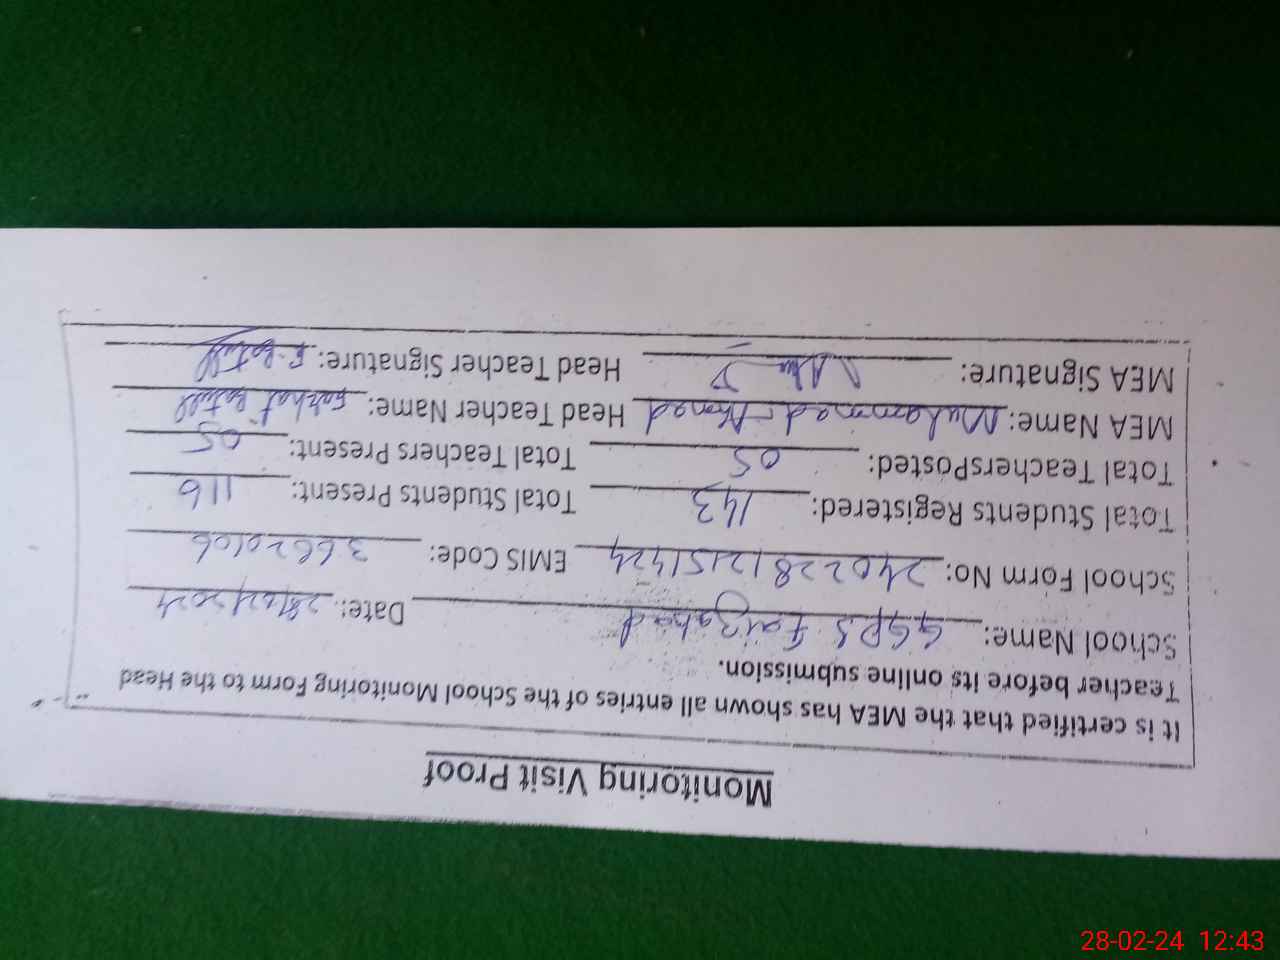 Monitoring Visit Proof
It is certified that the MEA has shown all entries of the School Monitoring Form to the Head
Teacher before its online submission.
School Name: GGPS Faizabad Date: 28/02/2024
School Form No: 24022812151424 EMIS Code: 36620106
Total Students Registered: 143 Total Students Present: 116
Total TeachersPosted: 05 Total Teachers Present: 05
MEA Name: Muhammad Ahmad Head Teacher Name: Farhat Batull
MEA Signature: Head Teacher Signature: F. Batull
28-02-24 12:43